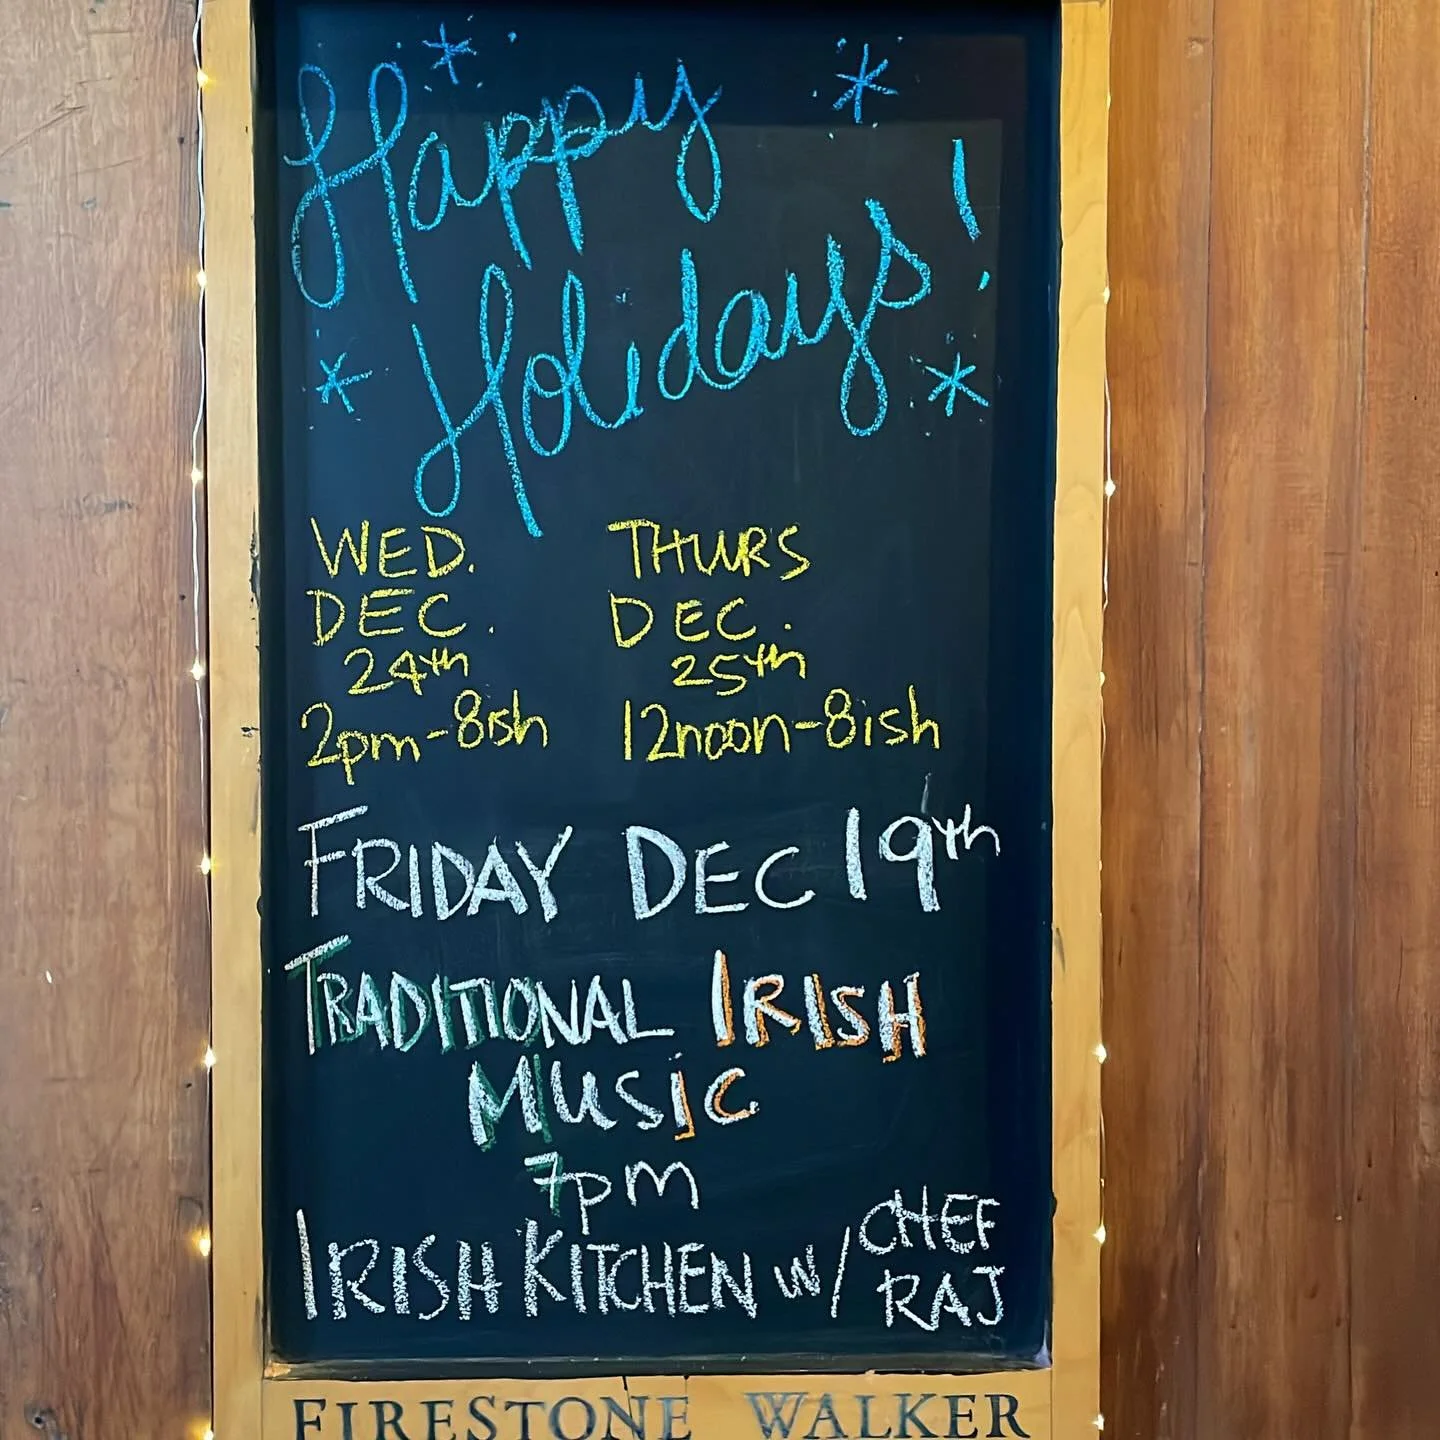 Happy
Holidays!
WED. THURS
DEC. DEC.
24th 25th
2pm-8ish 12noon-8ish
FRIDAY DEC 19th
TRADITIONAL IRISH
MUSIC
7pm
IRISH KITCHEN W/ CHEF
RAJ
FIRESTONE WALKER